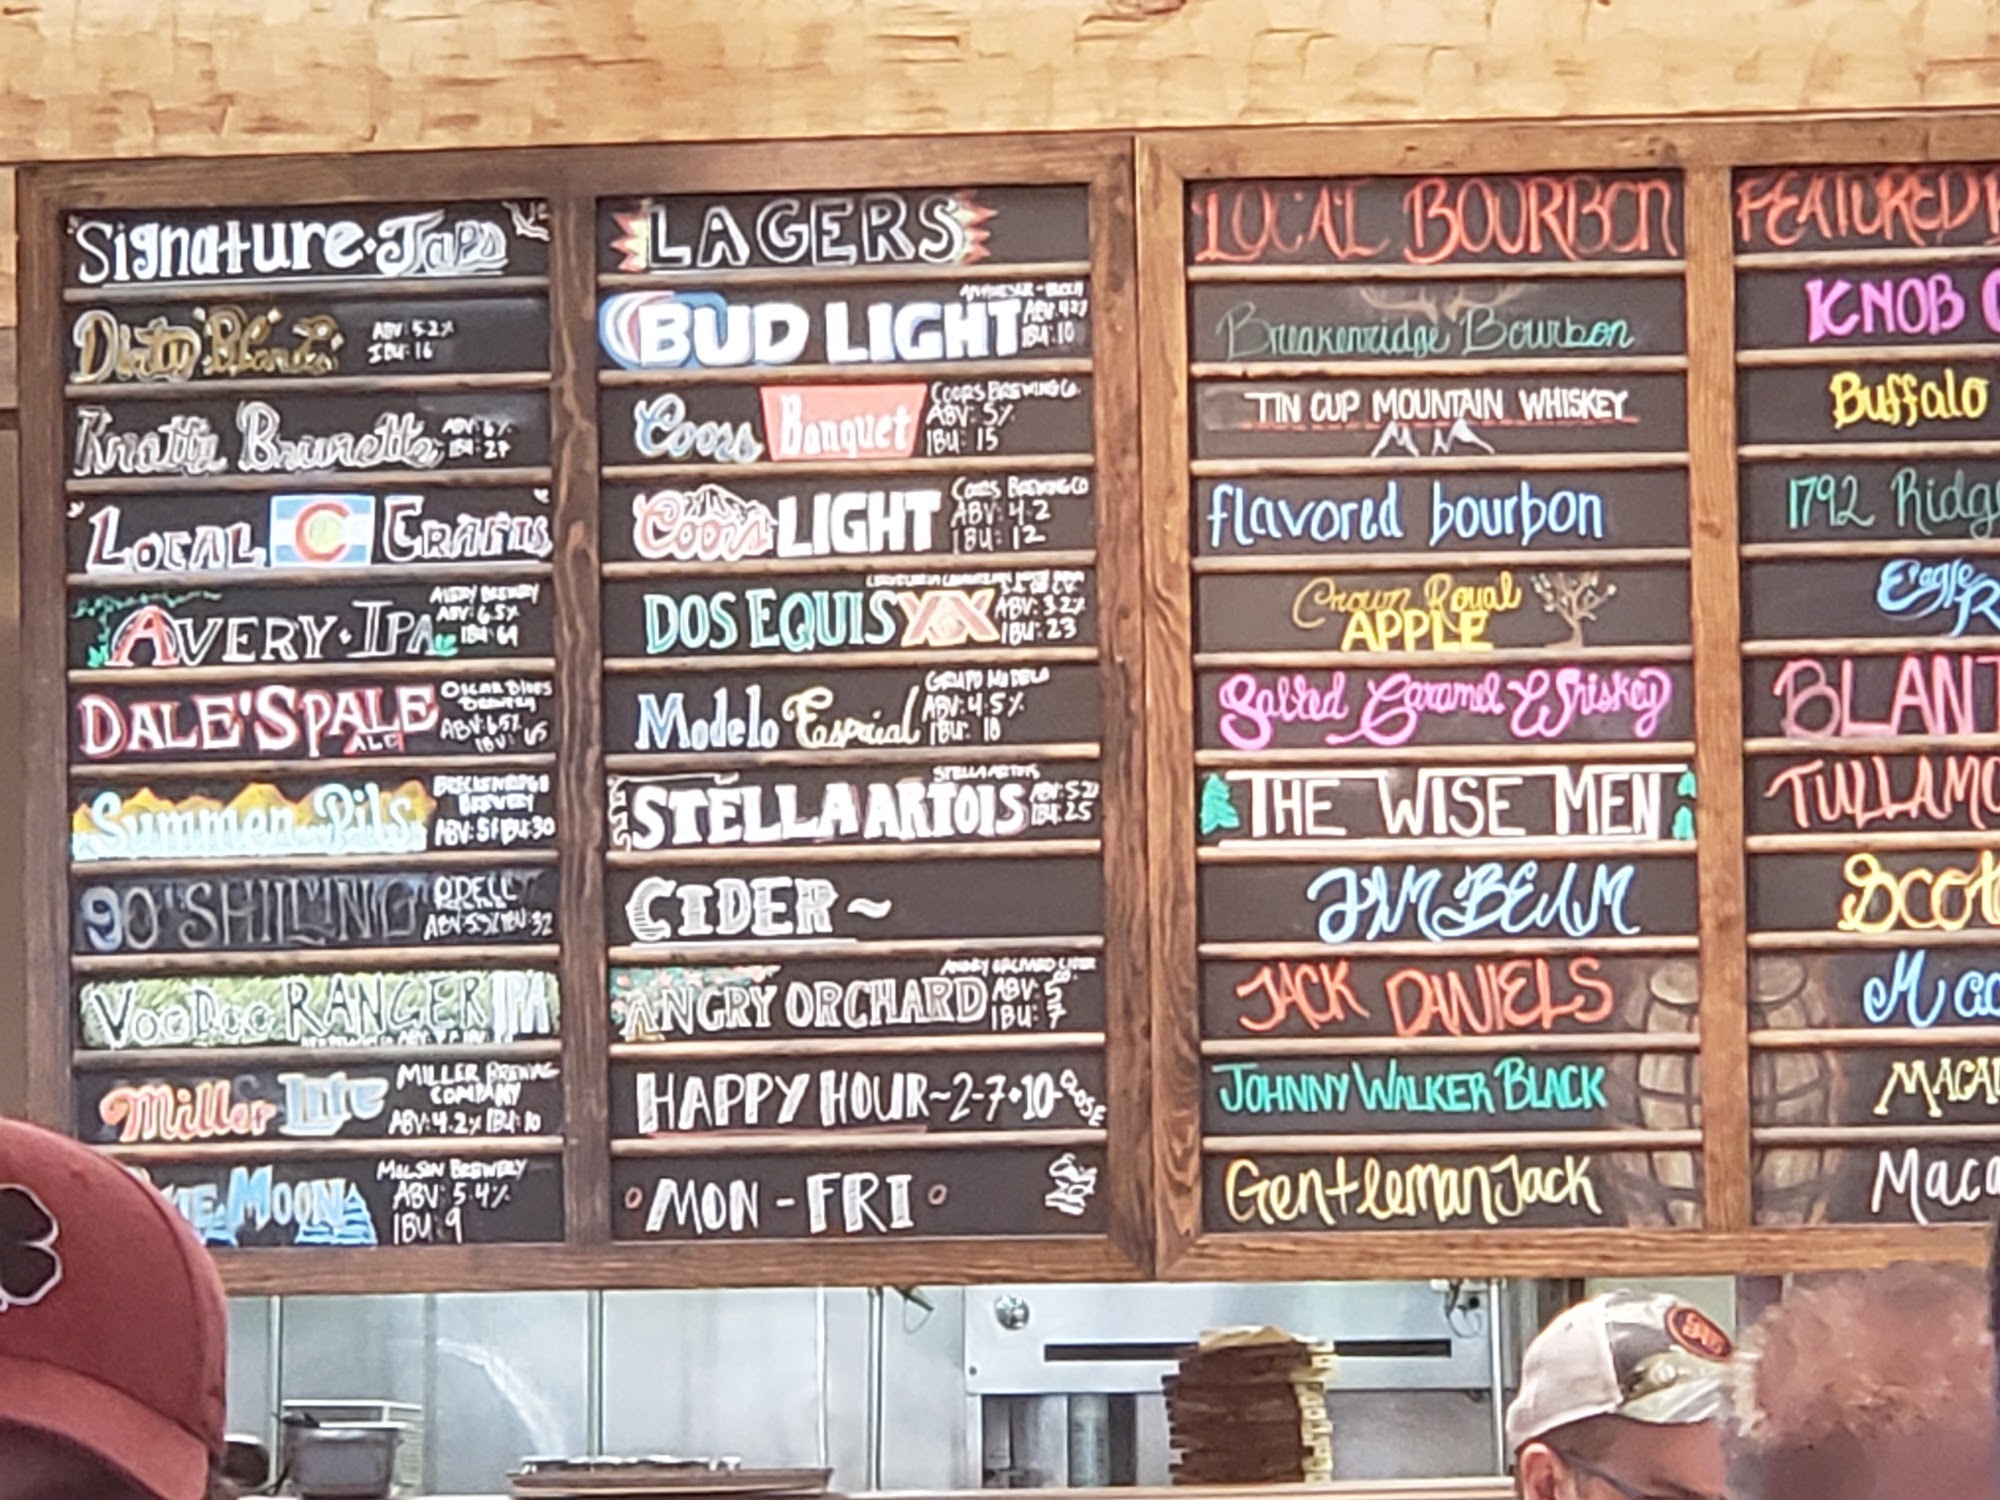 "Signature • Taps"
Dirty Blonde ABV: 5.2% IBU: 16
Knotty Brunette ABV: 6% IBU: 27
"Local C Crafts"
Avery • IPA AVERY BREWERY ABV: 6.5% IBU: 69
DALE'S PALE ALE OSCAR BLUES BREWERY ABV: 6.5% IBU: 65
Summer Pils BRECKENRIDGE BREWERY ABV: 5% IBU: 30
90 SHILLING ODELL ABV: 5.3% IBU: 32
VOODOO RANGER IPA
Miller Lite MILLER BREWING COMPANY ABV: 4.2% IBU: 10
MOON MOLSON BREWERY ABV: 5.4% IBU: 9
LAGERS
BUD LIGHT ANHEUSER-BUSCH ABV: 4.2% IBU: 10
Coors Banquet COORS BREWING Co. ABV: 5% IBU: 15
Coors LIGHT COORS BREWING CO ABV: 4.2 IBU: 12
DOS EQUIS XX ABV: 5.2% IBU: 23
Modelo Especial GRUPO MODELO ABV: 4.5% IBU: 18
STELLA ARTOIS STELLA ARTOIS ABV: 5.2% IBU: 25
CIDER~
ANGRY ORCHARD ANGRY ORCHARD CIDER CO. ABV: 5 IBU: 7
HAPPY HOUR~2-7•10-CLOSE
MON-FRI
LOCAL BOURBON
Breakenridge Bourbon
TIN CUP MOUNTAIN WHISKEY
flavored bourbon
Crown Royal APPLE
Salted Caramel Whiskey
THE WISE MEN
JIM BEAM
JACK DANIELS
JOHNNY WALKER BLACK
Gentleman Jack
FEATURED
KNOB
Buffalo
1792 Ridg
Eagle R
BLANT
TULLAMO
Scot
Mac
MACAL
Maca